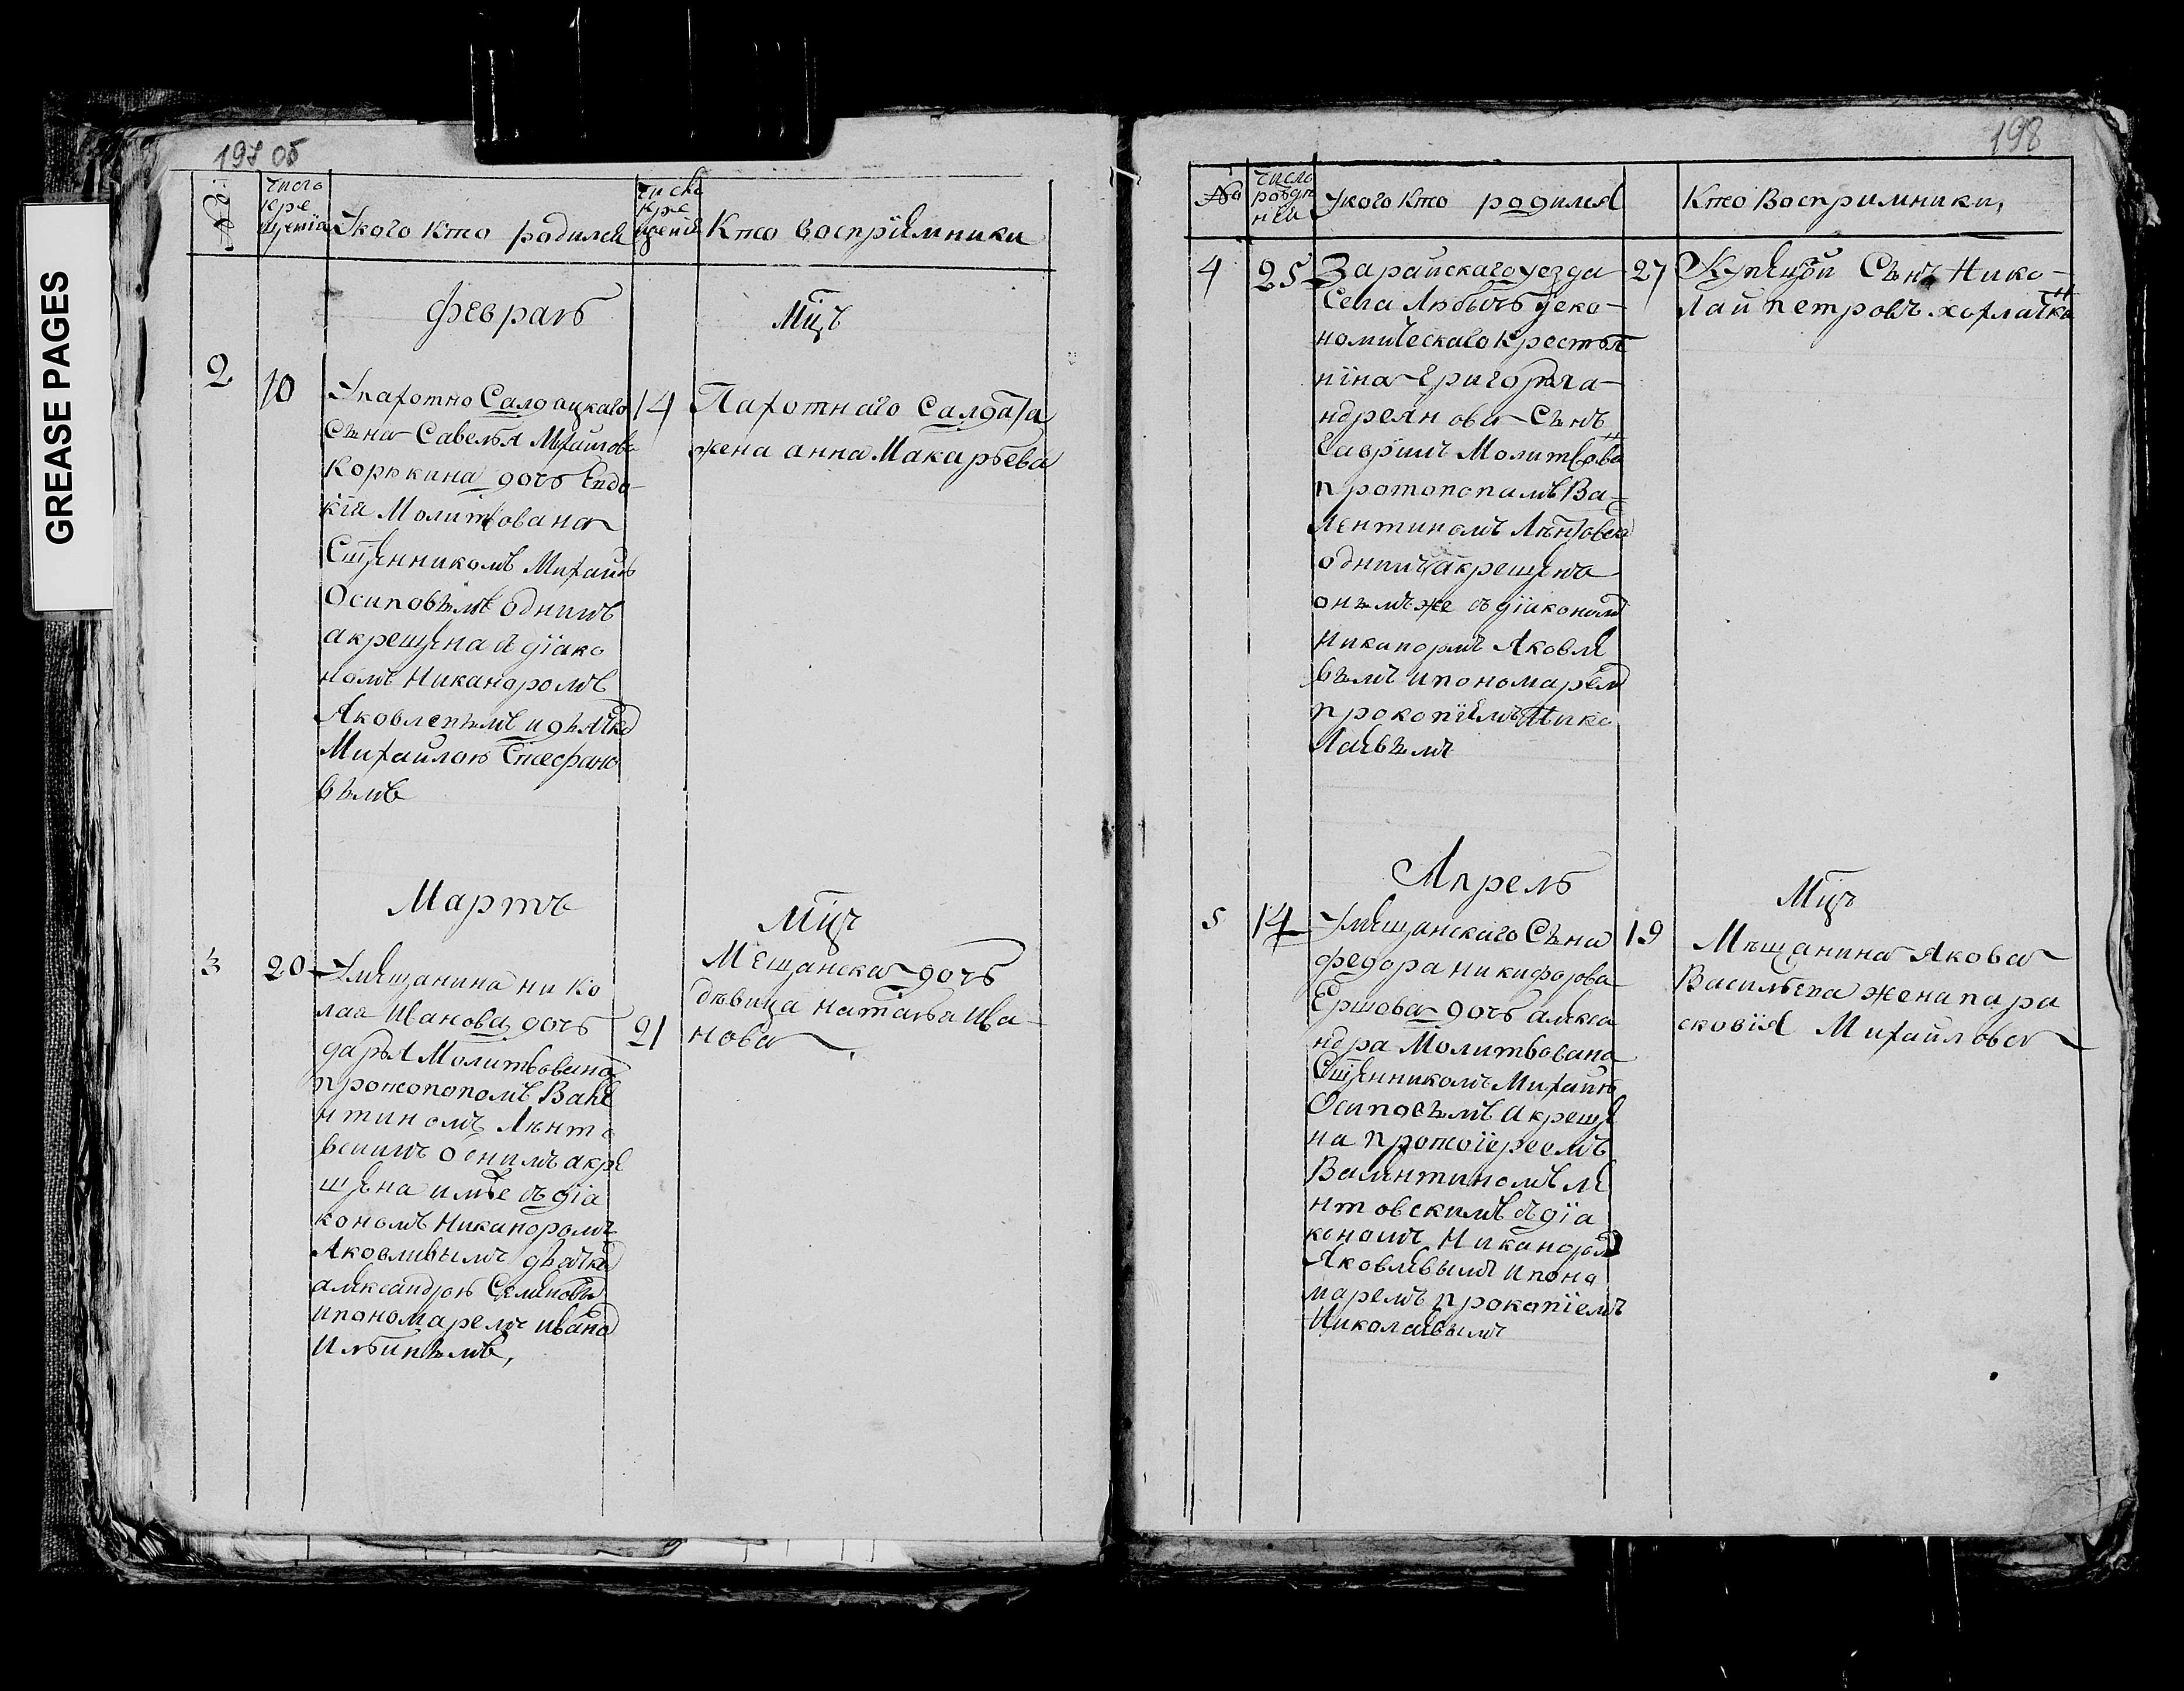 GREASE PAGES
197 об
№
число кре щенія
Укого кто родился
число кре щенія
Кто воспріемники
февраль
Мцъ
2
10
14
Упахотно Салдацкаго
Сына Савелья Михайлова
Корюкина дочь Евдо-
кія Молитвована
Сщенникомъ Михайло
Осиповымъ однимъ
акрещена съ діако
номъ Никаноромъ
Яковлевымъ и дьячко
Михайлою Стефано
вымъ
Пахотнаго Салдата
жена анна Макарьева
Мартъ
Мцъ
3
20
21
Умещанина нико
лая Иванова дочь
дарья Молитвована
протопопомъ Вале
нтиномъ Лент
однимъ акре
щена имже съ діа
кономъ Никаноромъ
Яковлевымъ дьячко
александромъ Семеновы
ипономаремъ ивано
Ильинымъ,
Мещанска дочь
дѣвица наталья Ива-
нова
198
№
число рожде ней
Укого кто родился
Кто Восприимники,
4
25
27
Зарайскаго уезда
Села Любычь Уеко-
номическаго Крестья
нїна Григорья а-
ндреянова Сынъ
Гавріилъ Молитвова
протопопамъ Ва-
лентиномъ Лентовск
однимъ акрещена
онымъже съ діякономъ
Никаноромъ Яковле
вымъ ипономарем
прокопіемъ Нико
лаевымъ
Купецкой Сынъ Нико-
лай петровъ
Апрель
Мцъ
5
14
19
Умещанскаго Сына
федора никифорова
Ершова дочь алекса
ндра Молитвована
Сщенникомъ Михайло
Осиповымъ акреще
на протоіереемъ
Валентиномъ ле
нтовскимъ съ діа
кономъ Никаноро
Яковлевымъ ипоно
маремъ прокопіемъ
Николаевымъ
Мещанина Якова
Васильева жена пара
сковія Михайлова